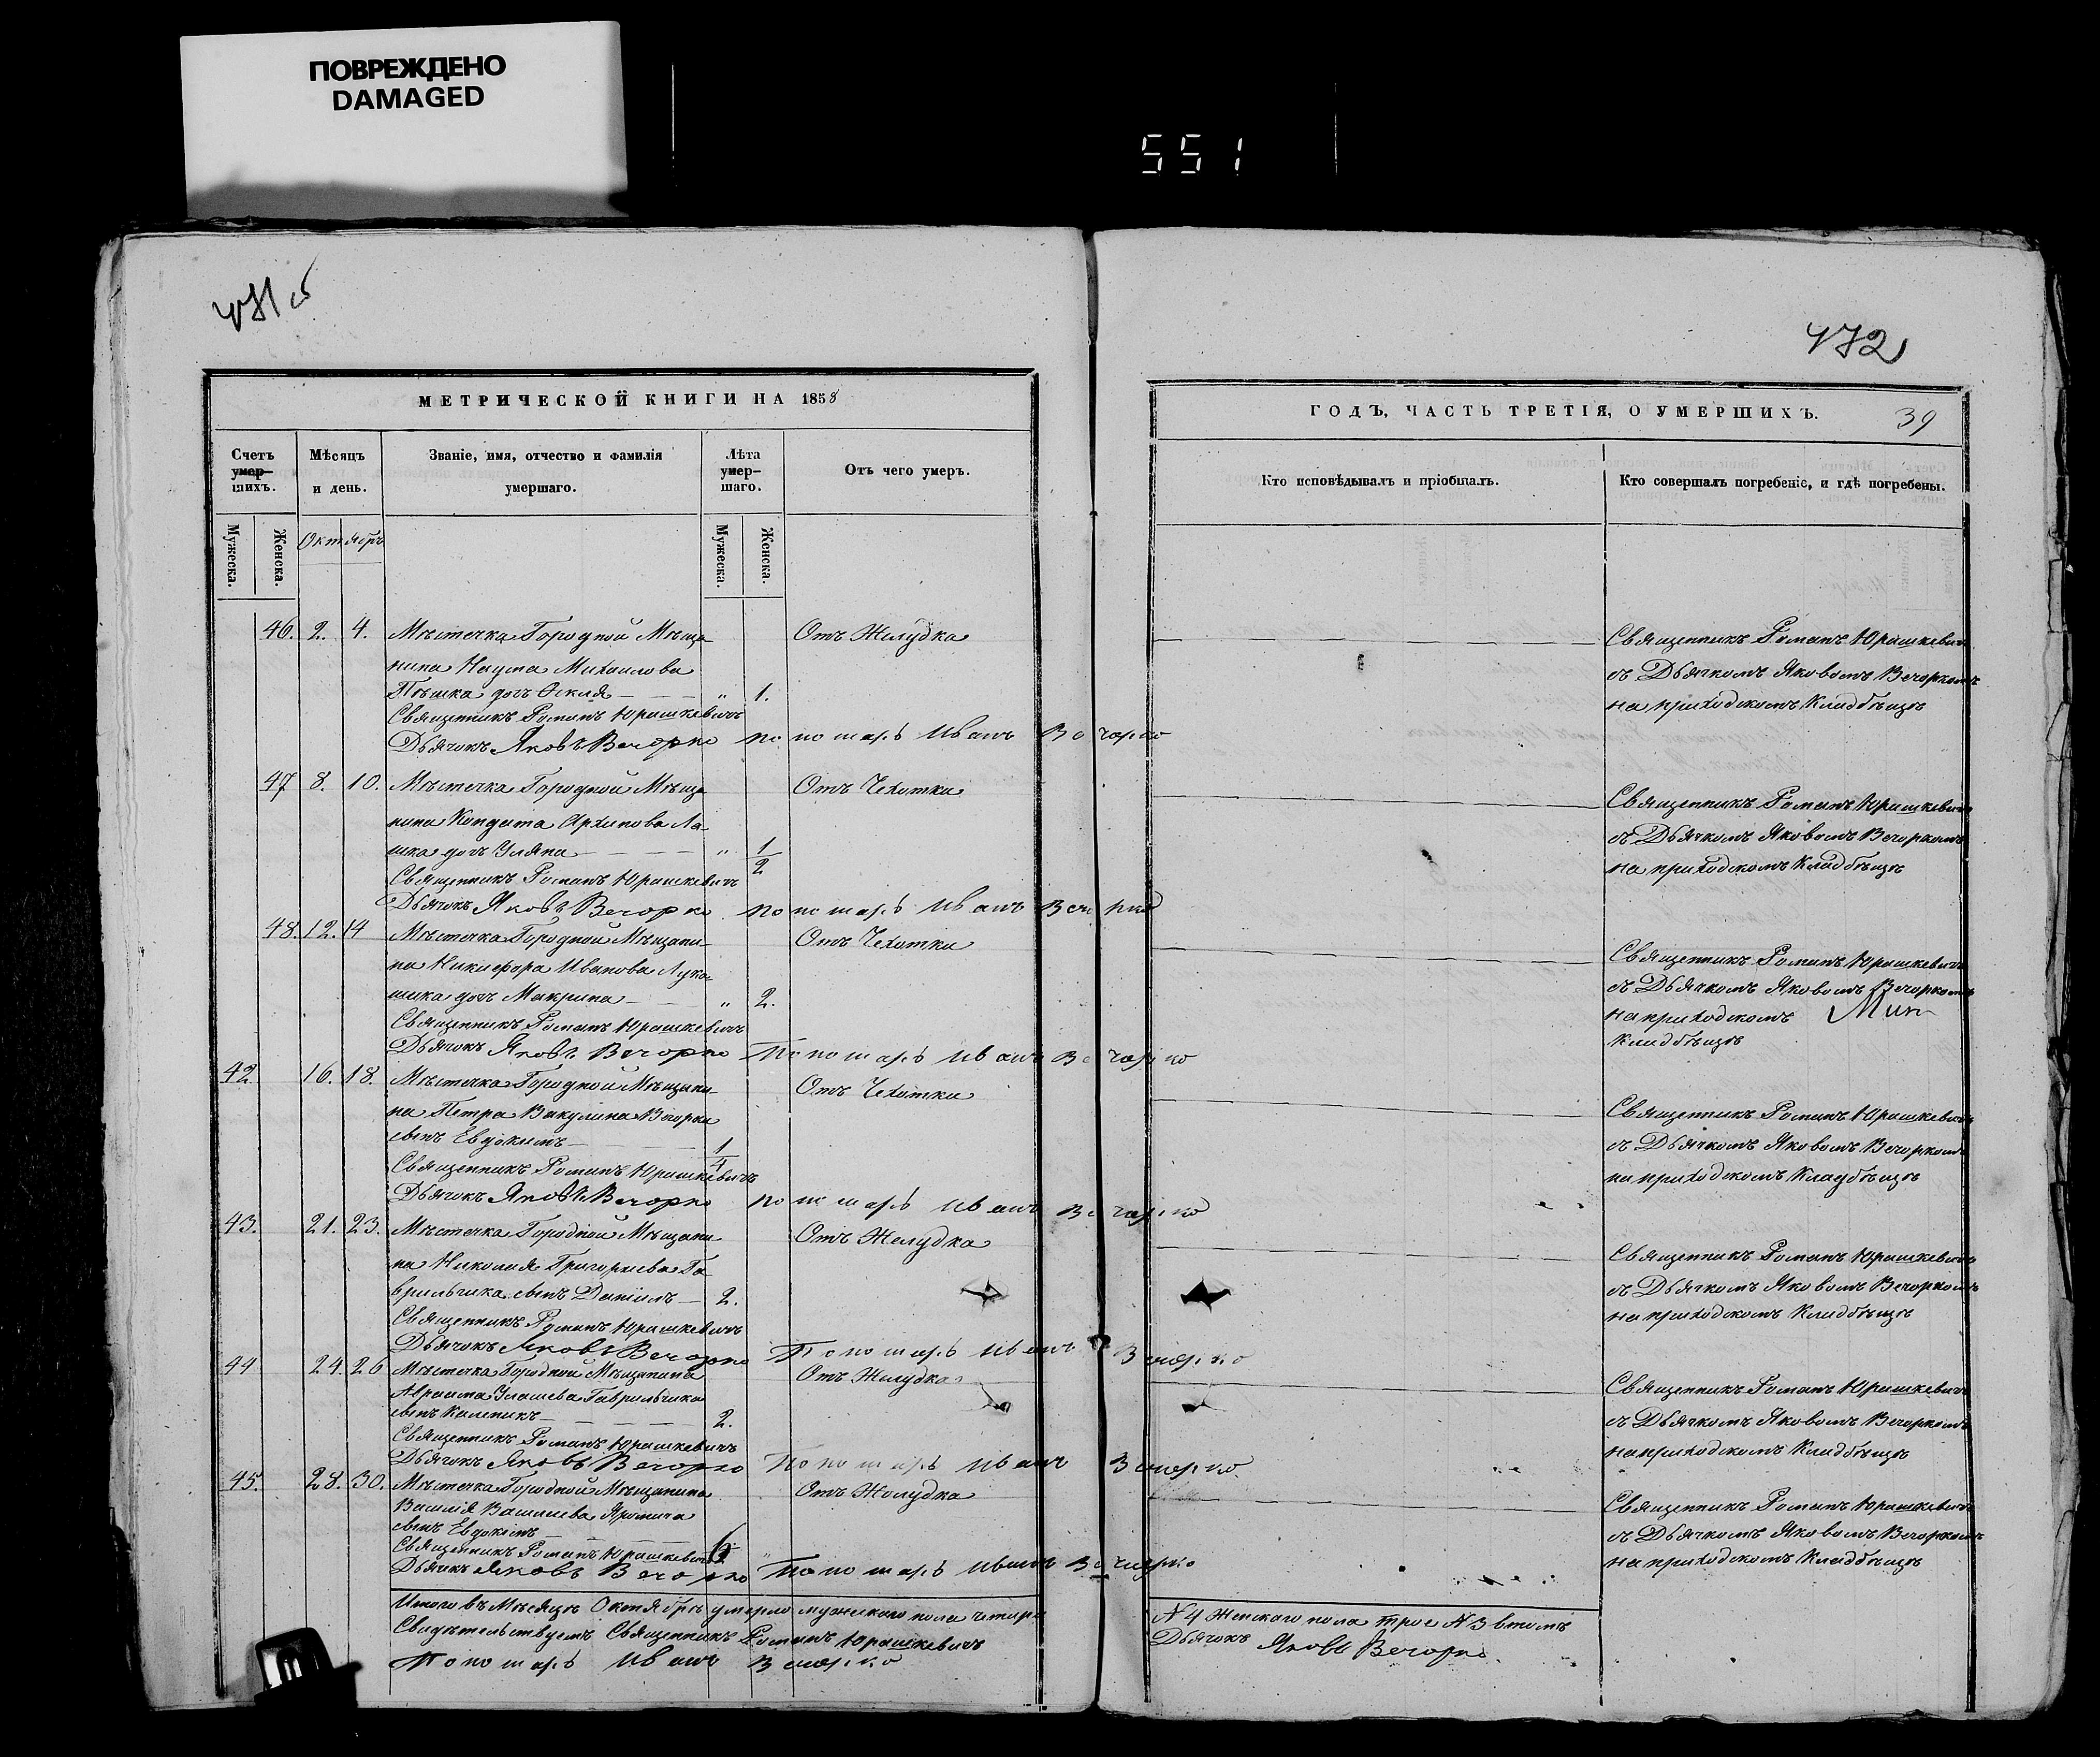 ПОВРЕЖДЕНО
DAMAGED
551
472
МЕТРИЧЕСКОЙ КНИГИ НА 1858
Счетъ умер-шихъ.
Мѣсяцъ и день.
Званіе, имя, отчество и фамилія умершаго.
Лѣта умер-шаго.
Отъ чего умеръ.
Мужеска.
Женска.
Октябрь
Мужеска.
Женска.
46. 2. 4. Мѣстечка Городной Мѣща Отъ Желудка
нина Наума Михаилова
дочь " 1.
Священникъ Романъ Юрашкевичъ
Дьячокъ Яковъ Вечорко Пономарь Иванъ Вечорко
47 8. 10. Мѣстечка Городной Мѣща Отъ Чехотки
нина Кондрата Архипова Ла-
шка дочь Уляна " 1/2
Священникъ Романъ Юрашкевичъ
Дьячокъ Яковъ Вечорко Пономарь Иванъ Вечорко
48. 12. 14 Мѣстечка Городной Мѣщани- Отъ Чехотки
на Никифора Иванова Лука
шика дочь Макрина " 2.
Священникъ Романъ Юрашкевичъ
Дьячокъ Яковъ Вечорко Пономарь Иванъ Вечорко
42. 16. 18. Мѣстечка Городной Мѣщани- Отъ Чехотки
на Петра Вакулина Вечорки
сынъ Евдокимъ 1/4
Священникъ Романъ Юрашкевичъ
Дьячокъ Яковъ Вечорко Пономарь Иванъ Вечорко
43. 21. 23. Мѣстечка Городной Мѣщани- Отъ Желудка
на Николая Григориева Га-
врильчика сынъ Даніилъ 2.
Священникъ Романъ Юрашкевичъ
Дьячокъ Яковъ Вечорко Пономарь Иванъ Вечорко
44 24. 26 Мѣстечка Городной Мѣщанина Отъ Желудка
Авраама Гаврильчика
сынъ Каленикъ 2.
Священникъ Романъ Юрашкевичъ
Дьячокъ Яковъ Вечорко Пономарь Иванъ Вечорко
45. 28. 30. Мѣстечка Городной Мѣщанина Отъ Желудка
Василія Василиева
сынъ Евдокимъ
Священникъ Романъ Юрашкевичъ
Дьячокъ Яковъ Вечорко Пономарь Иванъ Вечорко
Итого въ Мѣсяцѣ Октябрѣ умерло мужескаго пола четыре
Свидѣтельствуемъ Священникъ Романъ Юрашкевичъ
Пономарь Иванъ Вечорко
ГОДЪ, ЧАСТЬ ТРЕТІЯ, О УМЕРШИХЪ.
39
Кто исповѣдывалъ и пріобщалъ.
Кто совершалъ погребеніе, и гдѣ погребены.
Священникъ Романъ Юрашкевичъ
съ Дьячкомъ Яковомъ Вечоркомъ
на приходскомъ Кладбѣщѣ
Священникъ Романъ Юрашкевичъ
съ Дьячкомъ Яковомъ Вечоркомъ
на приходскомъ Кладбѣщѣ
Священникъ Романъ Юрашкевичъ
съ Дьячкомъ Яковомъ Вечоркомъ
на приходскомъ
Кладбѣщѣ
Священникъ Романъ Юрашкевичъ
съ Дьячкомъ Яковомъ Вечоркомъ
на приходскомъ Кладбѣщѣ
Священникъ Романъ Юрашкевичъ
съ Дьячкомъ Яковомъ Вечоркомъ
на приходскомъ Кладбѣщѣ
Священникъ Романъ Юрашкевичъ
съ Дьячкомъ Яковомъ Вечоркомъ
на приходскомъ Кладбѣщѣ
Священникъ Романъ Юрашкевичъ
съ Дьячкомъ Яковомъ Вечоркомъ
на приходскомъ Кладбѣщѣ
N 4 Женскаго пола трое N 3 въ томъ
Дьячокъ Яковъ Вечорко